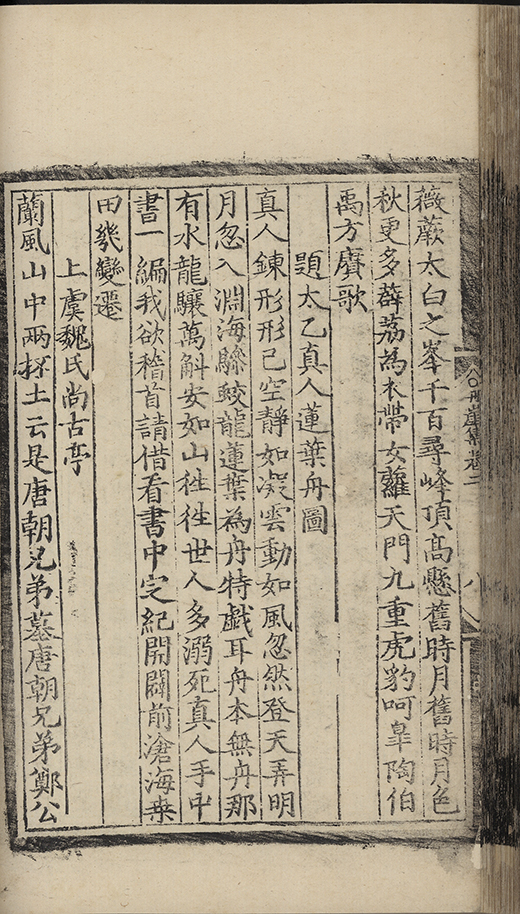 薇蕨太白之峯千百尋峰頂高懸舊時月舊時月色
秋更多薜荔為衣帶女蘿天門九重虎豹呵皐陶伯
禹方賡歌
題太乙真人蓮葉舟圖
真人鍊形形已空靜如凝雲動如風忽然登天弄明
月忽入淵海驂鮫龍蓮葉為舟特戯耳舟本無舟那
有水龍驤萬斛安如山徃徃世人多溺死真人手中
書一編我欲稽首請借看書中定紀開闢前滄海桒
田幾變遷
上虞魏氏尚古亭
蘭風山中兩抔土云是唐朝兄弟墓唐朝兄弟鄭公
集卷二
八